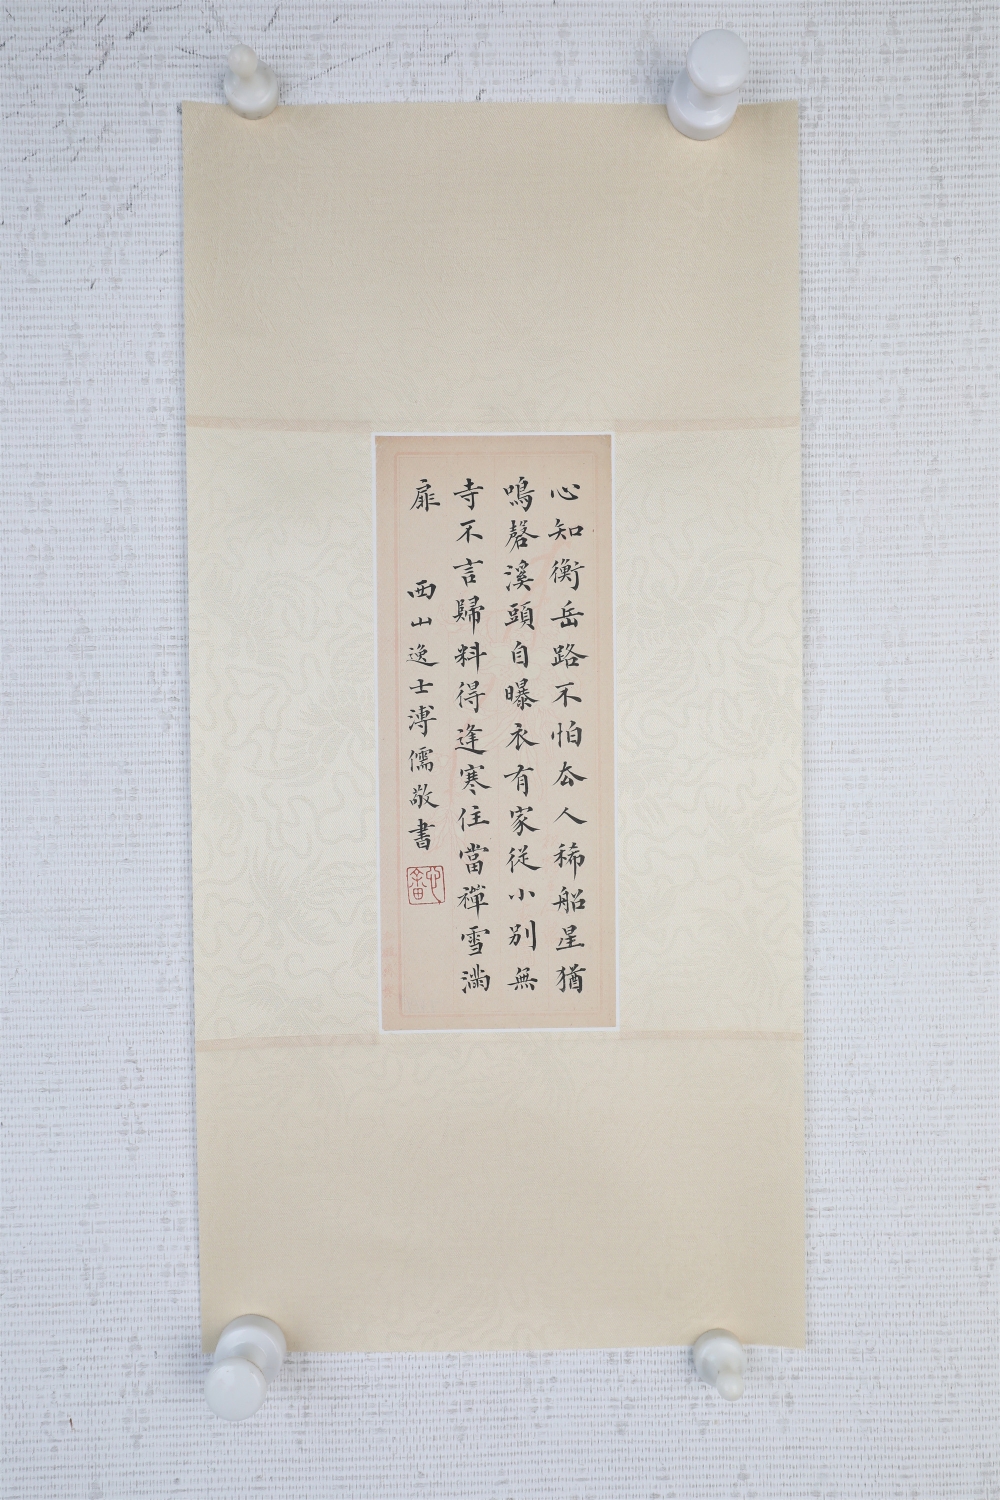 心知衡岳路不怕夻人稀船星猶
鳴磬溪頭自曝衣有家從小別無
寺不言歸料得逢寒住當禪雪滿
扉
西山逸士溥儒敬書
心畬